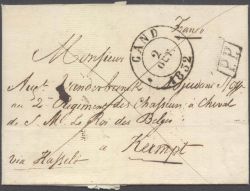 Franco
GAND
2
OCT.
1832
P.P.
Monsieur
Augte Vanderbrandt Adjudant S/Off.
au 2e Régiment des Chasseurs à Cheval
de S. M. Le Roi des Belges
à Kermpt
via Hasselt